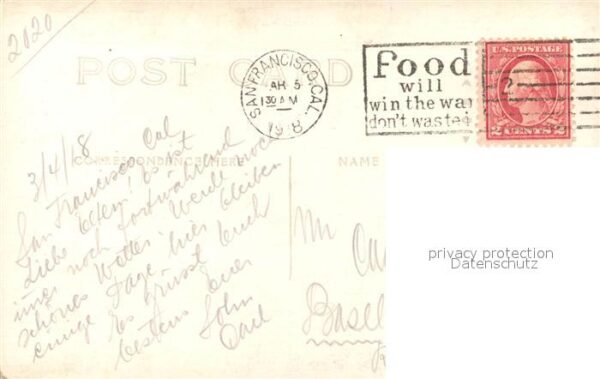 2020
POST CARD
SAN FRANCISCO, CAL.
MAR 5
130 AM
1918
Food
will
win the war
don't waste it
U.S. POSTAGE
2
2 CENTS 2
CORRESPONDENCE HERE
NAME
3/4/18
San Francisco Cal
Liebe Eltern! Es ist
immer noch fortwährend
schönes Wetter. Werde noch
einige Tage hier bleiben
Es grüsst Euch
bestens Euer
Sohn
Carl
Mr
Basel
privacy protection
Datenschutz